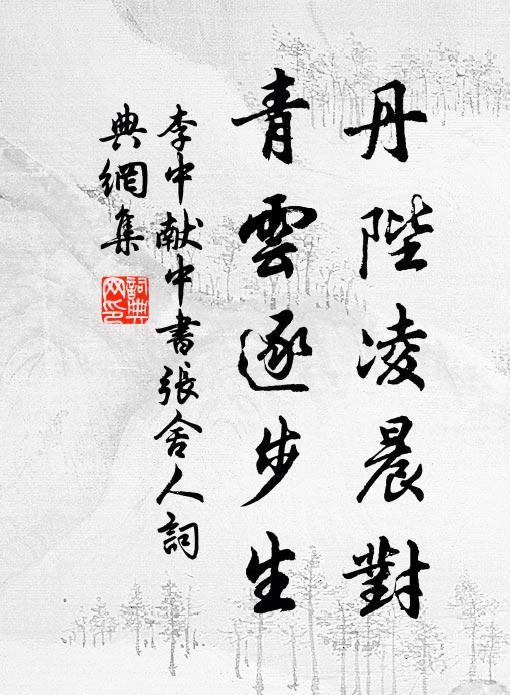 丹陛凌晨對
青雲逐步生
李中献中書張舍人詞
典網集
詞典
网印